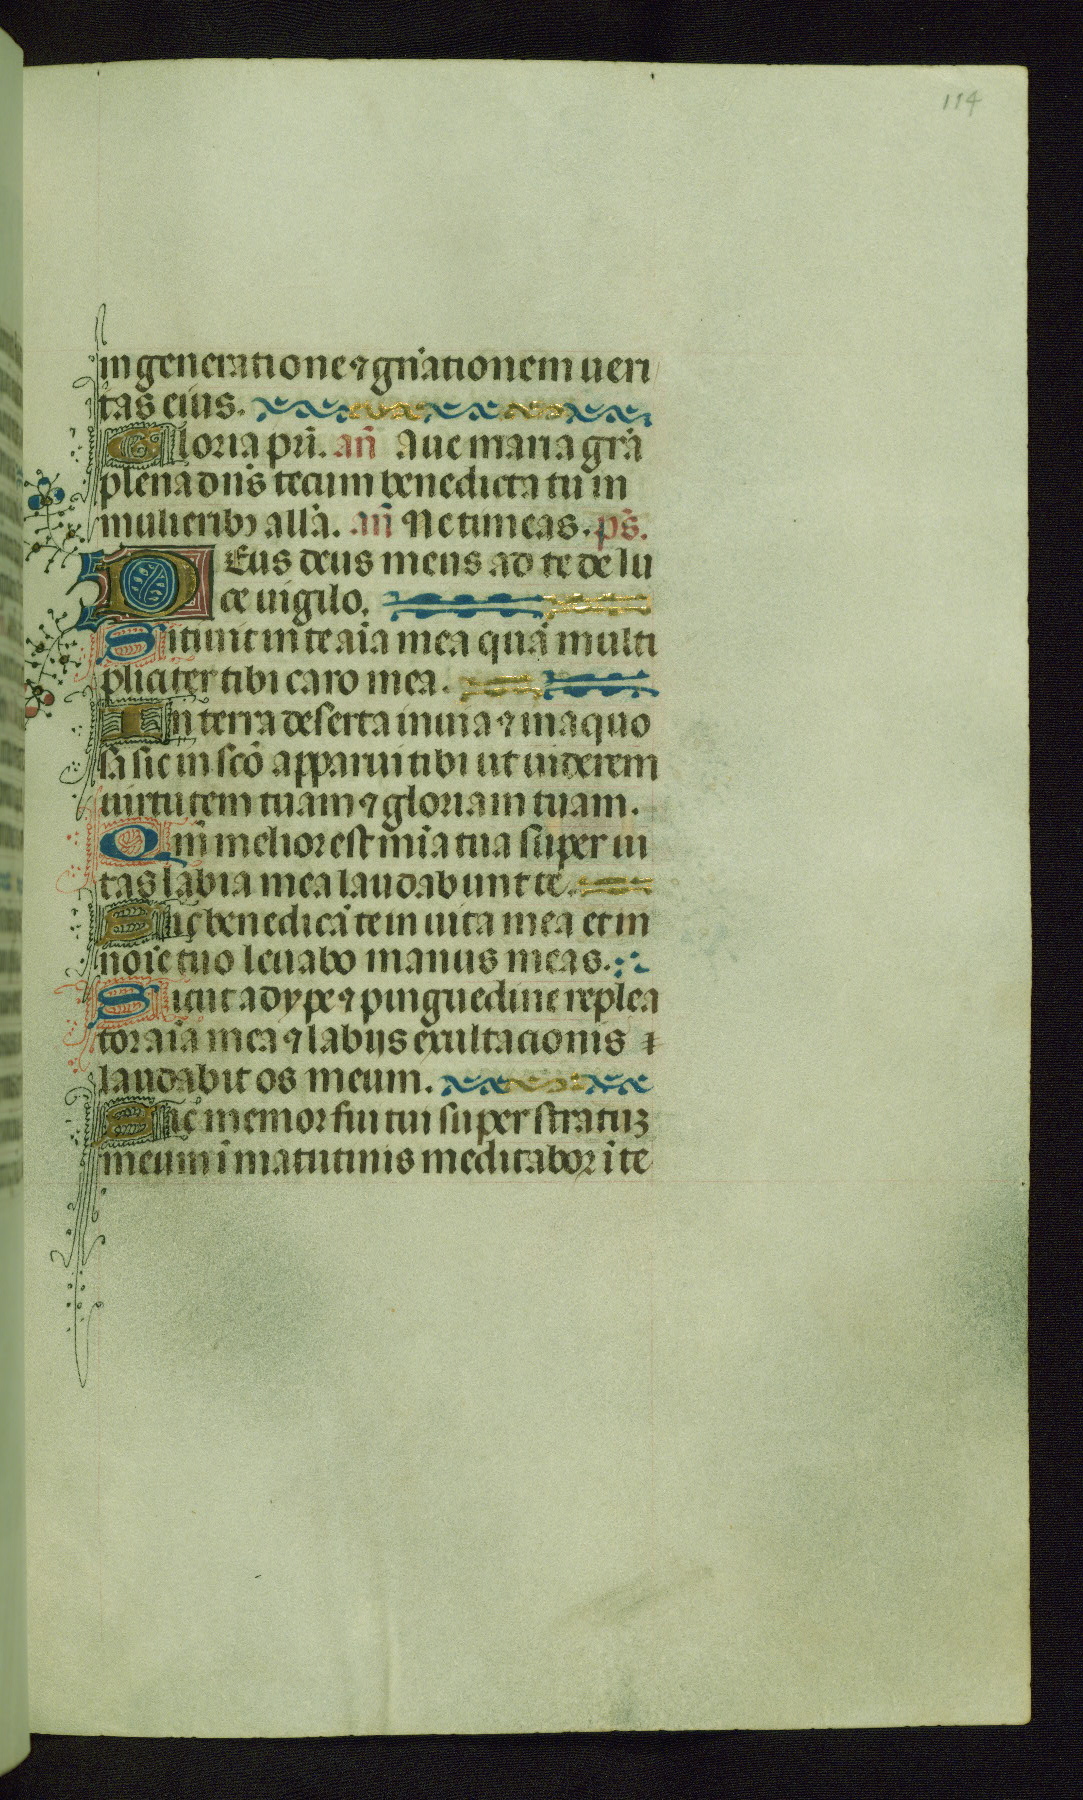 114
in generatione ⁊ gn̄ationem ueri
tas eius.
Gloria pr̄i. an̄ Aue maria gr̄a
plena dn̄s tecum benedicta tu in
mulierib⁊ all̄a. an̄ Ne timeas. ps̄.
Deus deus meus ad te de lu
ce uigilo.
Sitiuit in te aīa mea quā multi
pliciter tibi caro mea.
In terra deserta inuia ⁊ inaquo
sa sic in scō apparui tibi ut uiderem
uirtutem tuam ⁊ gloriam tuam.
Qm̄ melior est mīa tua super ui
tas labia mea laudabunt te.
Sic benedicā te in uita mea et in
noīe tuo leuabo manus meas.
Sicut adype ⁊ pinguedine replea
tor aīa mea ⁊ labijs exultacionis
laudabit os meum.
Sic memor fui tui super stratuꝫ
meum ī matutinis meditabor ī te